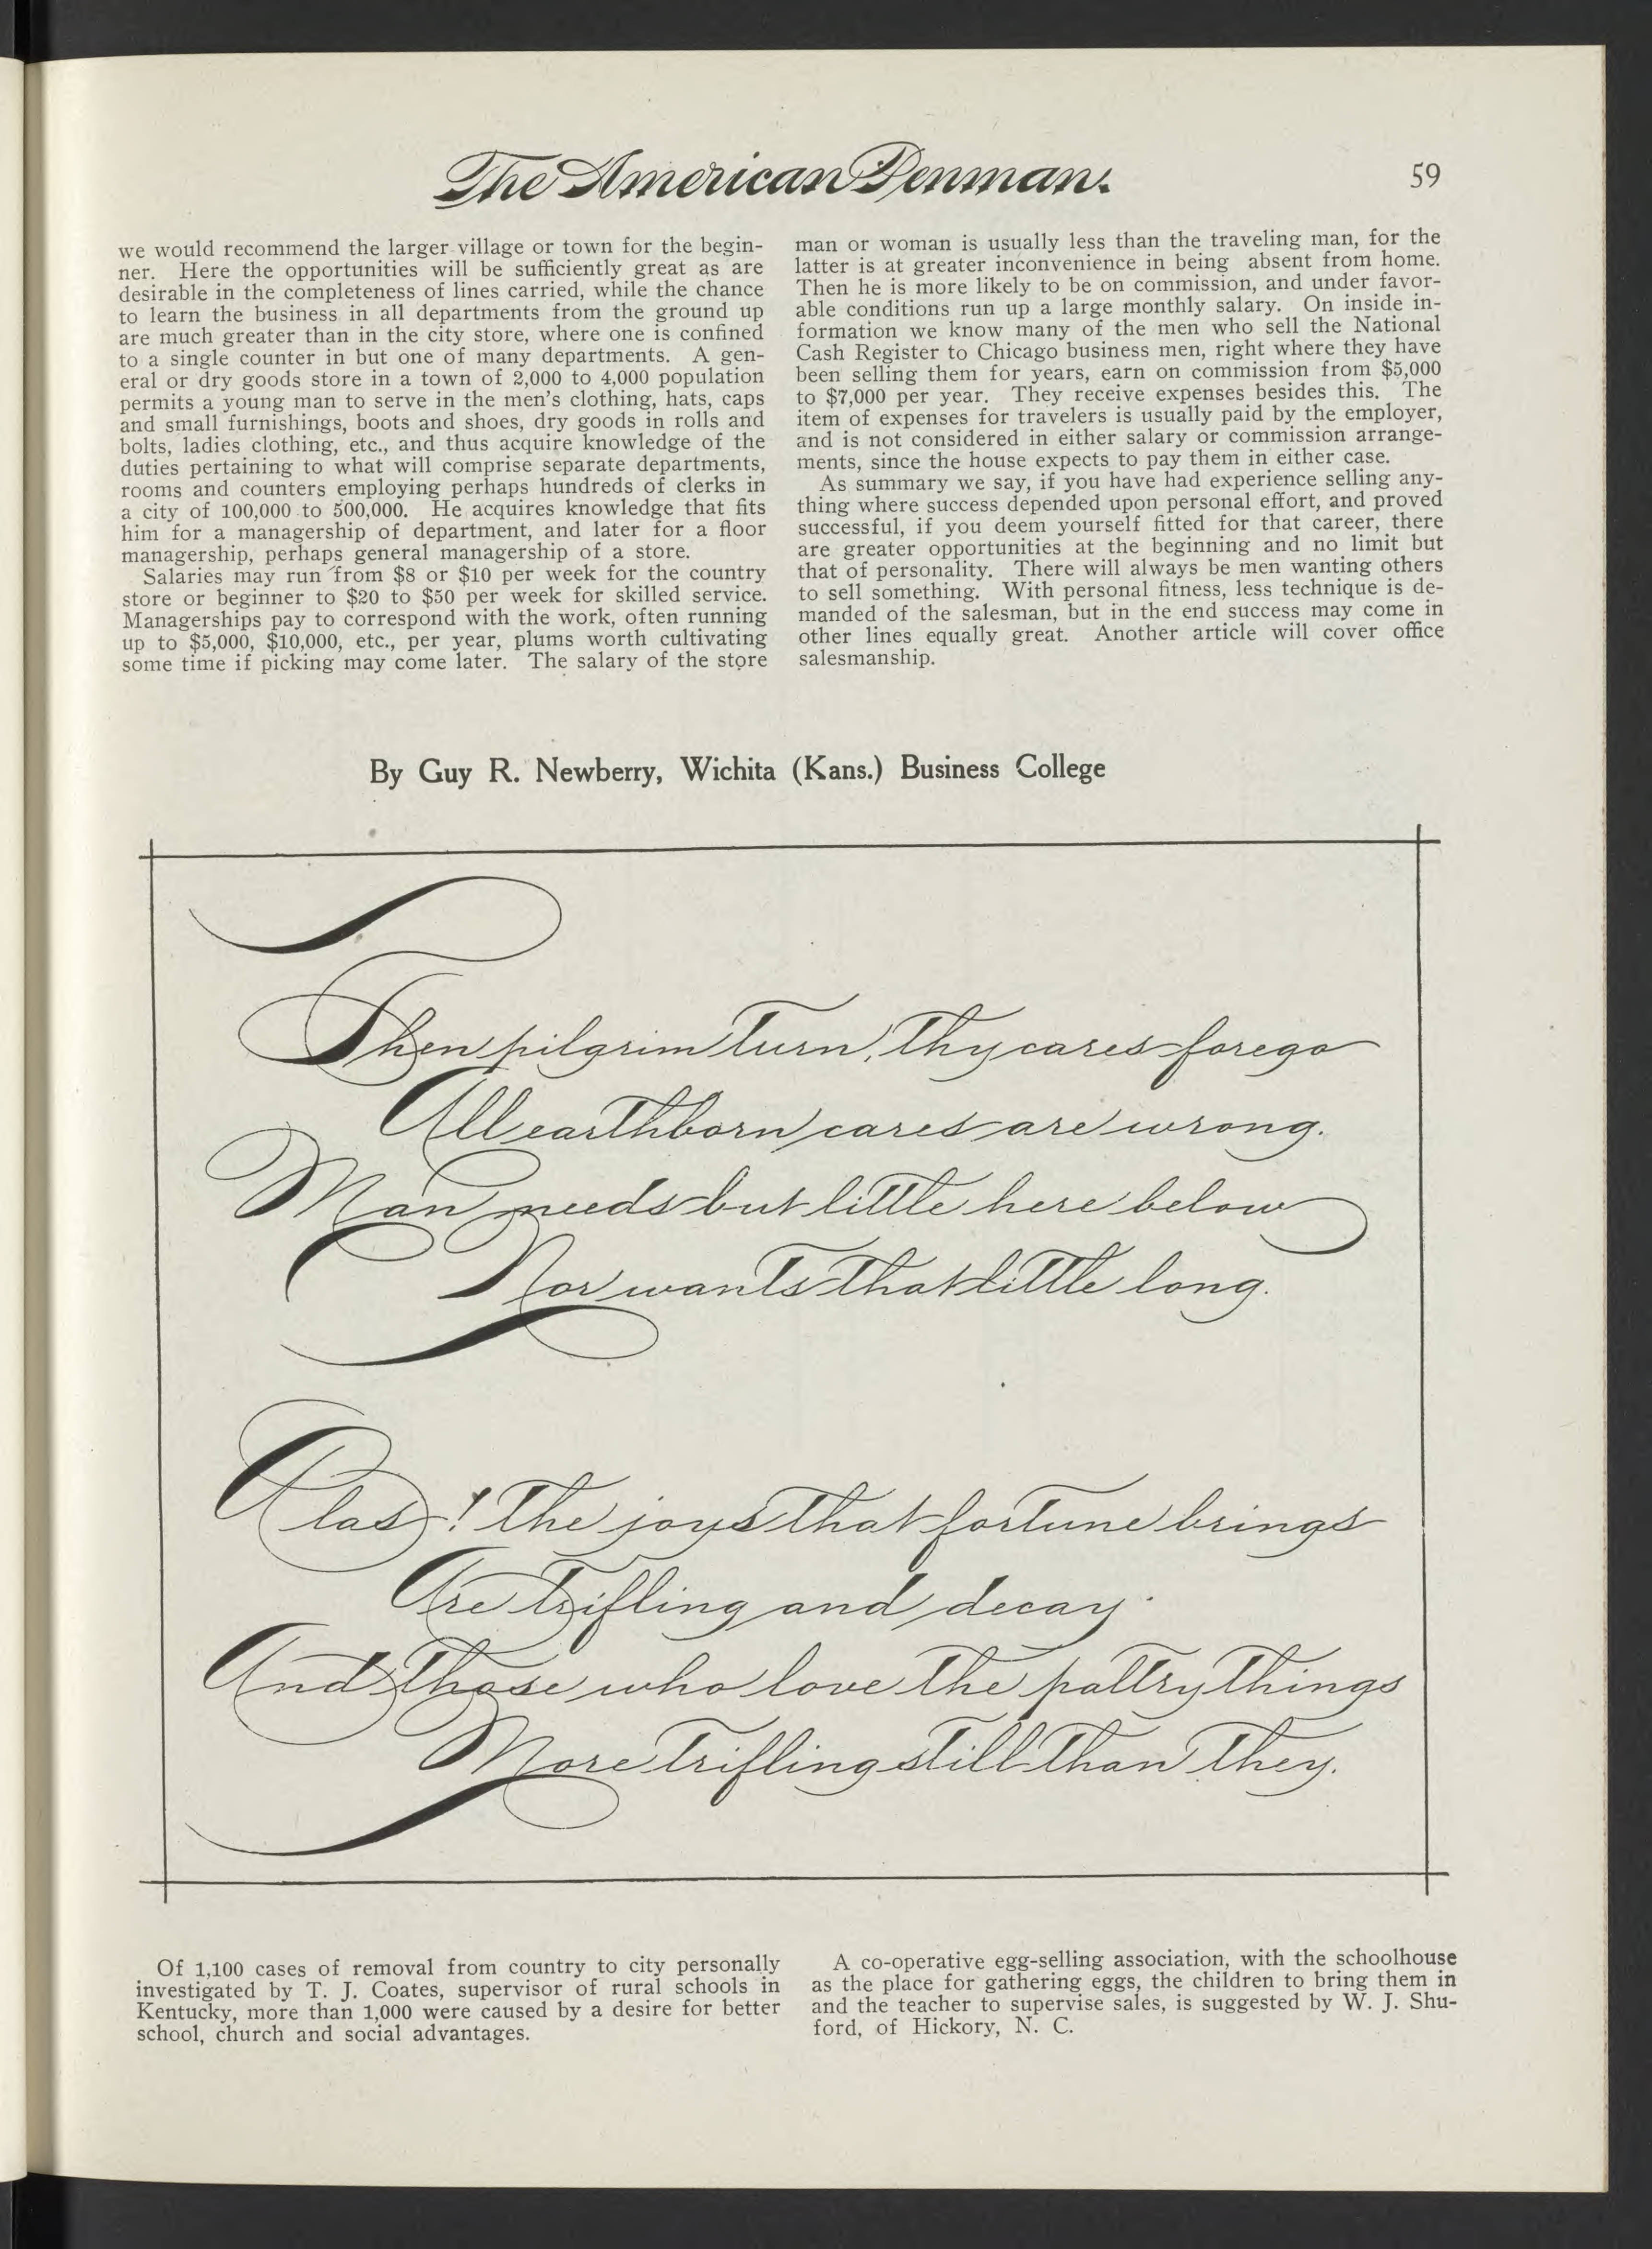 The American Penman.
59
we would recommend the larger village or town for the begin-
ner. Here the opportunities will be sufficiently great as are
desirable in the completeness of lines carried, while the chance
to learn the business in all departments from the ground up
are much greater than in the city store, where one is confined
to a single counter in but one of many departments. A gen-
eral or dry goods store in a town of 2,000 to 4,000 population
permits a young man to serve in the men's clothing, hats, caps
and small furnishings, boots and shoes, dry goods in rolls and
bolts, ladies clothing, etc., and thus acquire knowledge of the
duties pertaining to what will comprise separate departments,
rooms and counters employing perhaps hundreds of clerks in
a city of 100,000 to 500,000. He acquires knowledge that fits
him for a managership of department, and later for a floor
managership, perhaps general managership of a store.
Salaries may run from $8 or $10 per week for the country
store or beginner to $20 to $50 per week for skilled service.
Managerships pay to correspond with the work, often running
up to $5,000, $10,000, etc., per year, plums worth cultivating
some time if picking may come later. The salary of the store
man or woman is usually less than the traveling man, for the
latter is at greater inconvenience in being absent from home.
Then he is more likely to be on commission, and under favor-
able conditions run up a large monthly salary. On inside in-
formation we know many of the men who sell the National
Cash Register to Chicago business men, right where they have
been selling them for years, earn on commission from $5,000
to $7,000 per year. They receive expenses besides this. The
item of expenses for travelers is usually paid by the employer,
and is not considered in either salary or commission arrange-
ments, since the house expects to pay them in either case.
As summary we say, if you have had experience selling any-
thing where success depended upon personal effort, and proved
successful, if you deem yourself fitted for that career, there
are greater opportunities at the beginning and no limit but
that of personality. There will always be men wanting others
to sell something. With personal fitness, less technique is de-
manded of the salesman, but in the end success may come in
other lines equally great. Another article will cover office
salesmanship.
By Guy R. Newberry, Wichita (Kans.) Business College
Then pilgrim turn, thy cares forego
All earthborn cares are wrong.
Man needs but little here below
Nor wants that little long.
Alas! the joys that fortune brings
Are trifling and decay.
And those who love the paltry things
More trifling still than they.
Of 1,100 cases of removal from country to city personally
investigated by T. J. Coates, supervisor of rural schools in
Kentucky, more than 1,000 were caused by a desire for better
school, church and social advantages.
A co-operative egg-selling association, with the schoolhouse
as the place for gathering eggs, the children to bring them in
and the teacher to supervise sales, is suggested by W. J. Shu-
ford, of Hickory, N. C.